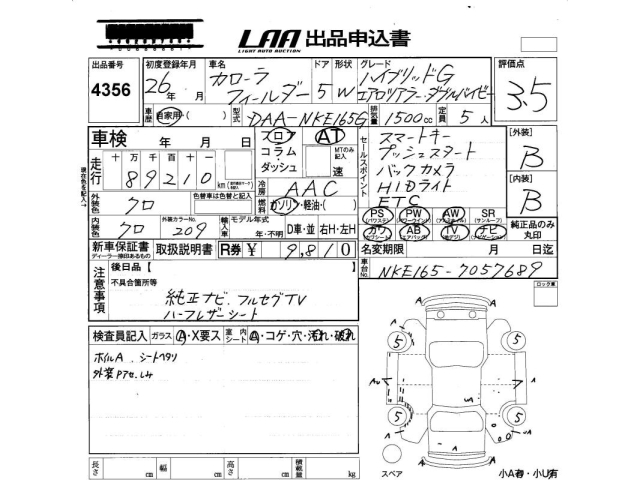 LAA 出品申込書
LIGHT AUTO AUCTION
出品番号 初度登録年月 車名 ドア 形状 グレード 評価点
4356 26年 月 カローラ フィールダー 5 W ハイブリッドG エアロツアラー・ダブルバイビー 3.5
車歴 自家用・( ) 型式 DAA-NKE165G 排気量 1500cc 定員 5人
車検 年 月 日
フロア コラム・ダッシュ AT MTのみ記入 速
セールスポイント
スマートキー
プッシュスタート
バックカメラ
HIDライト
ETC
[外装] B
[内装] B
走行 十万千百十一
89210 km
冷房 AAC
外装色 クロ 色替車は色替と記入
燃料 ガソリン・軽油・( )
PS AW SR
(パワステ) (サンルーフ)
カワ AB TV ナビ
純正品のみ丸印
内装色 クロ 外装カラーNo. 209
輸入車 モデル年式 年・不明 D車・並 右H・左H
新車保証書 取扱説明書 R券 ¥ 9,810
ディーラー捺印あるもの
名変期限 月 日迄
車台No. NKE165-7057689
注意事項
後日品【 】
不具合箇所等
純正ナビ.フルセグTV
ハーフレザーシート
ロック車
検査員記入 ガラス A・X要ス 室内シート A・コゲ・穴・汚れ・破れ
ホイルA . シートヘタリ
外装PアセしみS
5 5
5 5
A
長さ cm 幅 cm 高さ cm 積載量 kg
スペア
小A有・小U有